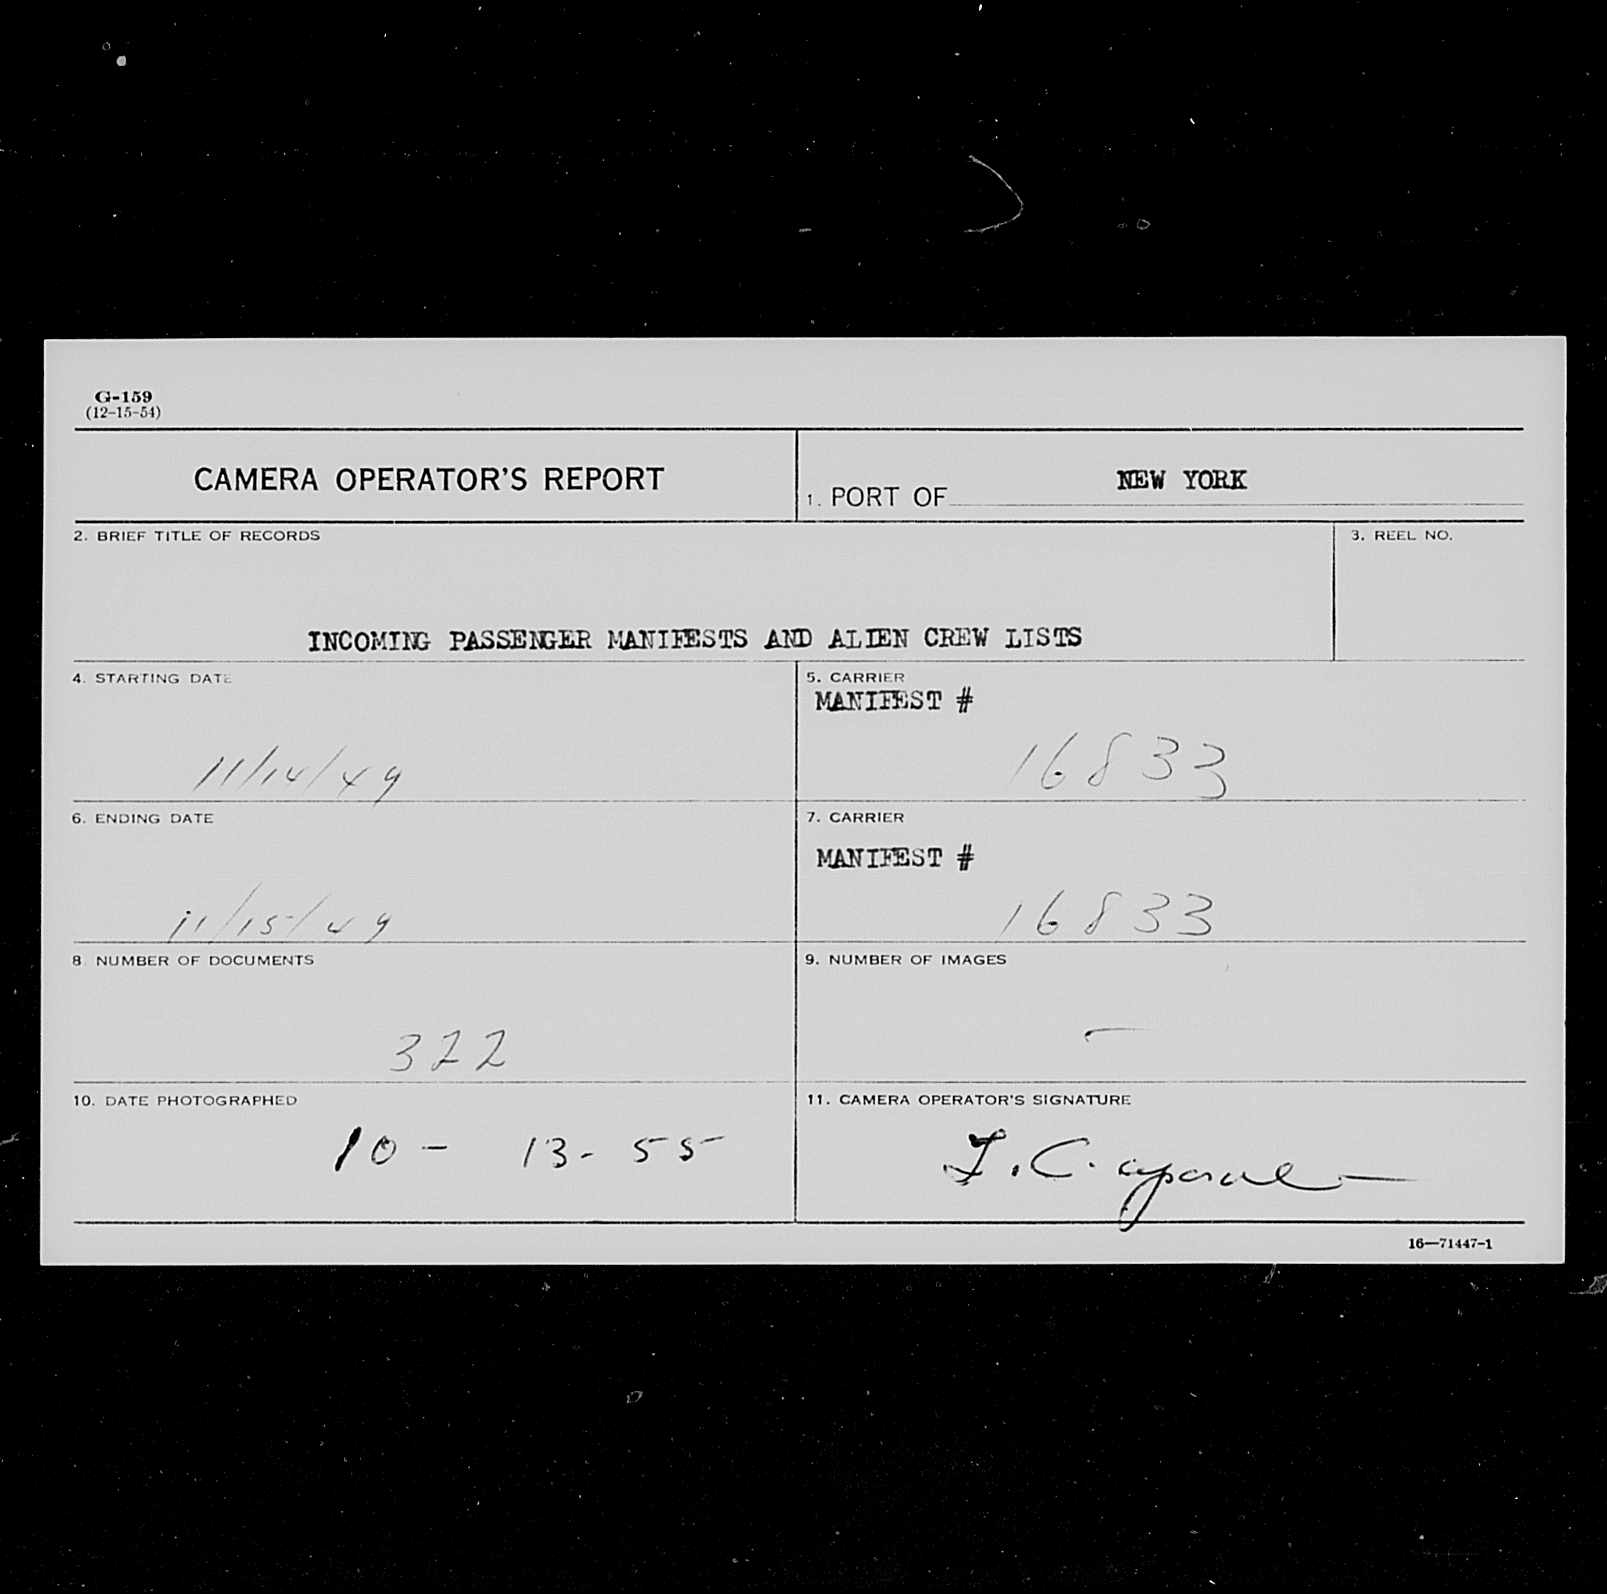 G-159
(12-15-54)
CAMERA OPERATOR'S REPORT
1. PORT OF NEW YORK
2. BRIEF TITLE OF RECORDS
3. REEL NO.
INCOMING PASSENGER MANIFESTS AND ALIEN CREW LISTS
4. STARTING DATE
5. CARRIER
MANIFEST #
11/14/49
16833
6. ENDING DATE
7. CARRIER
MANIFEST #
11/15/49
16833
8. NUMBER OF DOCUMENTS
9. NUMBER OF IMAGES
322
-
10. DATE PHOTOGRAPHED
11. CAMERA OPERATOR'S SIGNATURE
10 - 13-55
16—71447-1